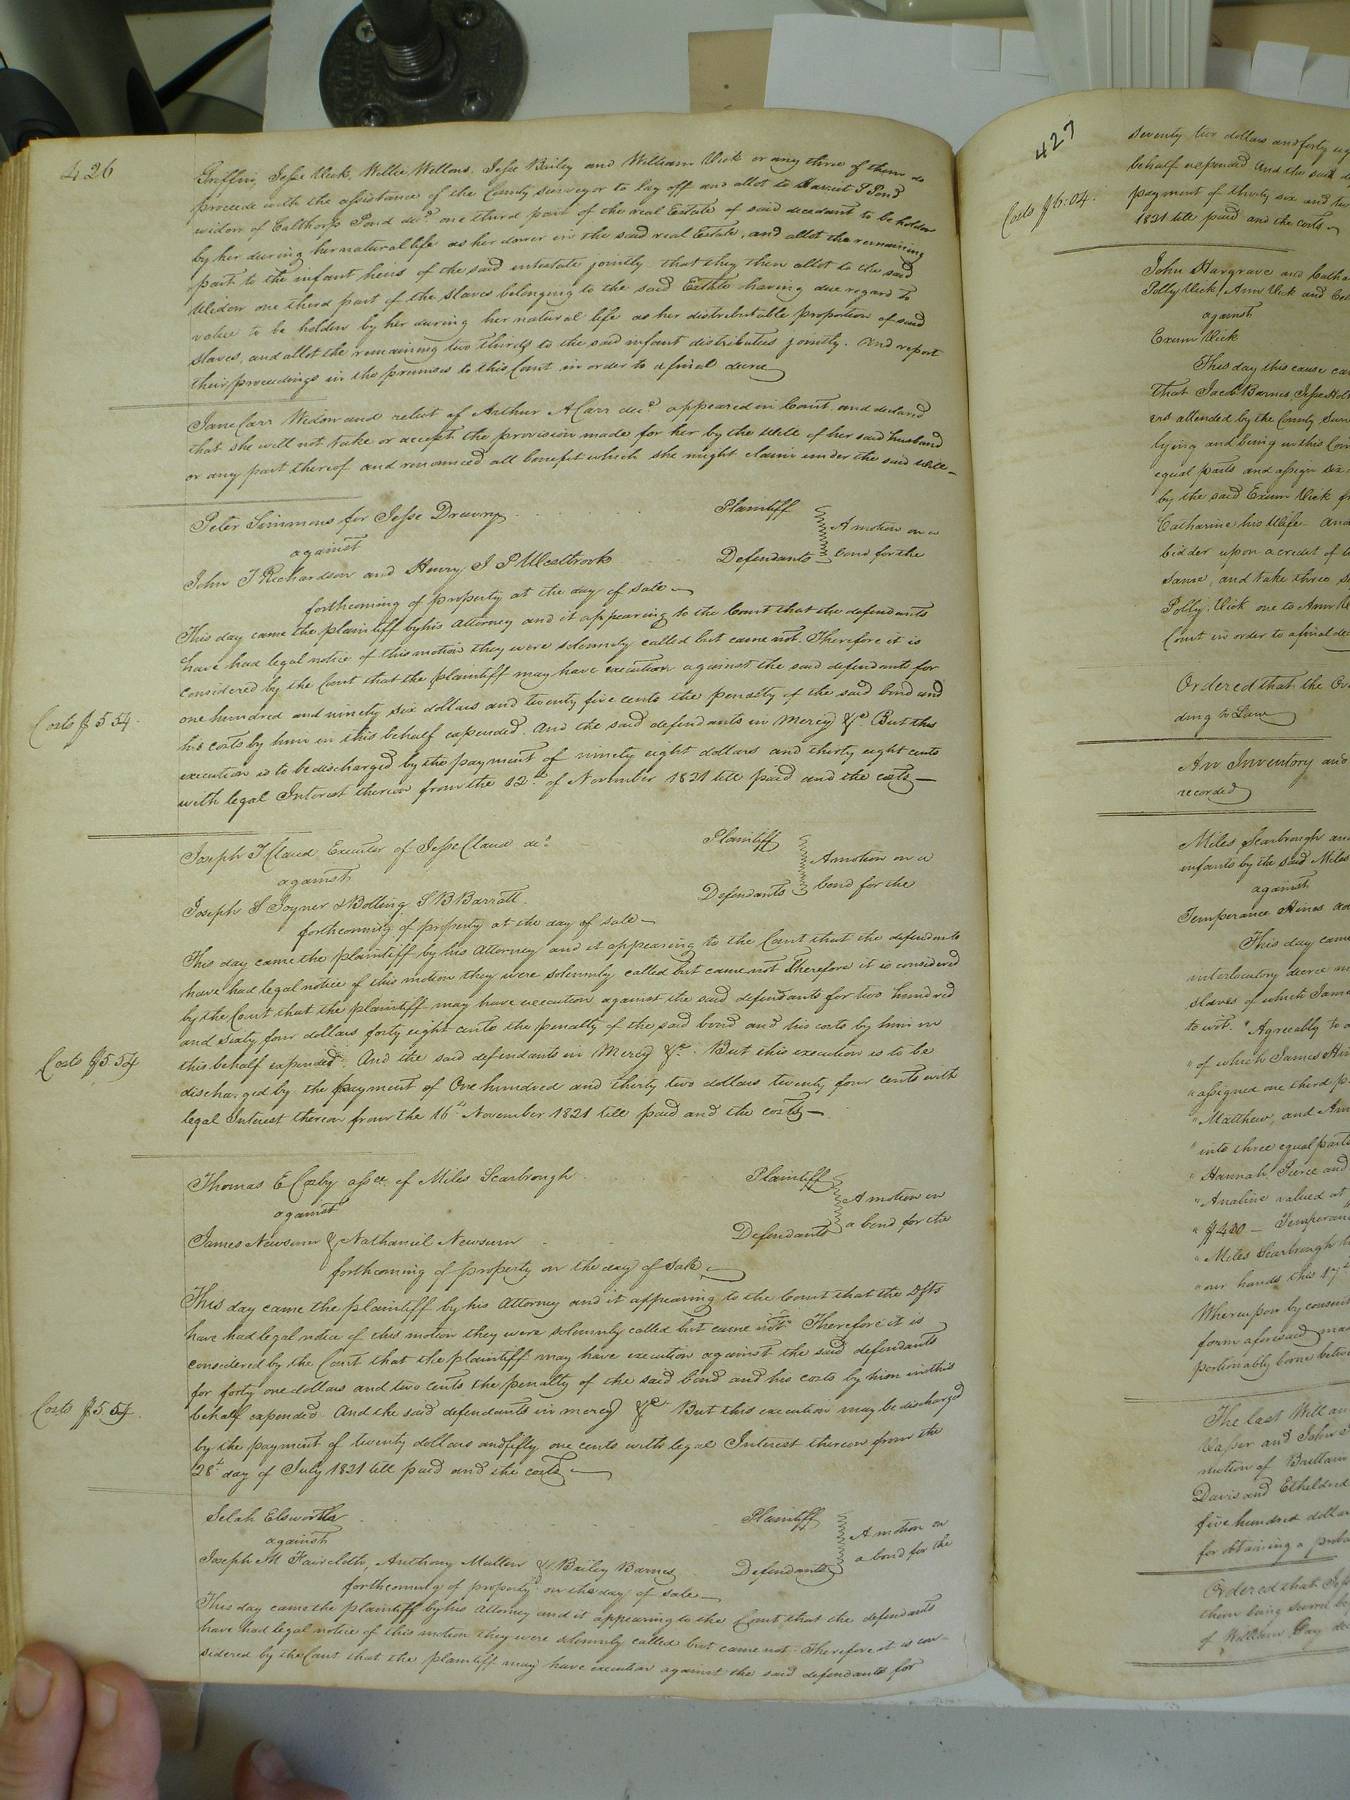 426
Griffin, Jesse Vick, Willie Wellons, Jesse Bailey and William Vick or any three of them do
proceed with the assistance of the County Surveyor to lay off and allot to Harriet S Pond
widow of Calthorp Pond decd. one third part of the real Estate of said decedant to be holden
by her during her natural life as her dower in the said real Estate, and allot the remaining
part to the infant heirs of the said intestate jointly that they then allot to the said
Widow one third part of the slaves belonging to the said Estate having due regard to
value to be holden by her during her natural life as her distributable proportion of said
slaves, and allot the remaining two thirds to the said infant distributees jointly. And report
their proceedings in the premises to this Court in order to a final decree
Jane Carr Widow and relict of Arthur A Carr decd. appeared in Court and declared
that she will not take or accept the provision made for her by the Will of her said husband
or any part thereof and renounced all benefit which she might claim under the said Will—
Peter Simmons for Jesse Drewry Plaintiff
against A motion on a
John T Richardson and Henry J P Westbrook Defendants bond for the
forthcoming of property at the day of sale—
This day came the plaintiff by his Attorney and it appearing to the Court that the defendants
have had legal notice of this motion they were solemnly called but came not. Therefore it is
considered by the Court that the plaintiff may have execution against the said defendants for
one hundred and ninety six dollars and twenty five cents the penalty of the said bond and
Costs $5.54.
his costs by him in this behalf expended. And the said defendants in Mercy &c. But this
execution is to be discharged by the payment of ninety eight dollars and thirty eight cents
with legal Interest thereon from the 12th of November 1821 till paid and the costs—
Joseph T Claud Executor of Jesse Claud decd. Plaintiff
against A motion on a
Joseph S Joyner & Bolling S B Barratt. Defendants bond for the
forthcoming of property at the day of sale—
This day came the plaintiff by his Attorney and it appearing to the Court that the defendants
have had legal notice of this motion they were solemnly called but came not Therefore it is considered
by the Court that the plaintiff may have execution against the said defendants for two hundred
and sixty four dollars forty eight cents the penalty of the said bond and his costs by him in
Costs $5.54
this behalf expended. And the said defendants in Mercy &c. But this execution is to be
discharged by the payment of One hundred and thirty two dollars twenty four cents with
legal Interest thereon from the 16th November 1821 till paid and the costs—
Thomas E Coxby assee of Miles Scarbrough Plaintiff
against A motion on
James Newsum & Nathaniel Newsum Defendants a bond for the
forthcoming of property on the day of sale,—
This day came the plaintiff by his Attorney and it appearing to the Court that the Dfts
have had legal notice of this motion they were solemnly called but came not. Therefore it is
considered by the Court that the plaintiff may have execution against the said defendants
for forty one dollars and two cents the penalty of the said bond and his costs by him in this
Costs $5.54
behalf expended. And the said defendants in mercy &c. But this execution may be discharged
by the payment of twenty dollars and fifty one cents with legal Interest thereon from the
28t day of July 1821 till paid and the costs—
Selah Elsworth Plaintiff
against A motion on
Joseph M Faircloth, Anthony Mullen & Bailey Barnes Defendants a bond for the
forthcoming of property on the day of sale—
This day came the plaintiff by his Attorney and it appearing to the Court that the defendants
have had legal notice of this motion they were solemnly called but came not. Therefore it is con-
sidered by the Court that the plaintiff may have execution against the said defendants for
427
seventy two dollars and forty
behalf expended And the said
Costs $6.04.
payment of thirty six and
1821 till paid and the costs—
John Hargrave and Catha
Polly Vick, Ann Vick and
against
Exum Vick
This day this cause ca
that Jacob Barnes, Jesse
ers attended by the County Surv
lying and being in this Cou
equal parts and assign six
by the said Exum Vick
Catharine his Wife. And
bidder upon a credit of
same, and take three
Polly Vick one to Ann
Court in order to a final de
Ordered that the Ov
ding to Law
An Inventory and
recorded
Miles Scarbrough and
infants by the said Miles
against
Temperance Hines
This day came
interlocutory decree
slaves of which Jame
to wit. "Agreeably to
" of which James Hin
" assigned one third p
" Matthew, and Ann
" into three equal parts
" Hannah, Pierce and
" Analine valued at
" $400 — Temperan
" Miles Scarbrough
" our hands this 17th
Whereupon by consent
form aforesaid, ma
portionably borne betw
The last Will an
and John
motion of Brittain
Davis and Etheldred
five hundred dollar
for obtaining a prob
Ordered that
them being sworn
of William Gay